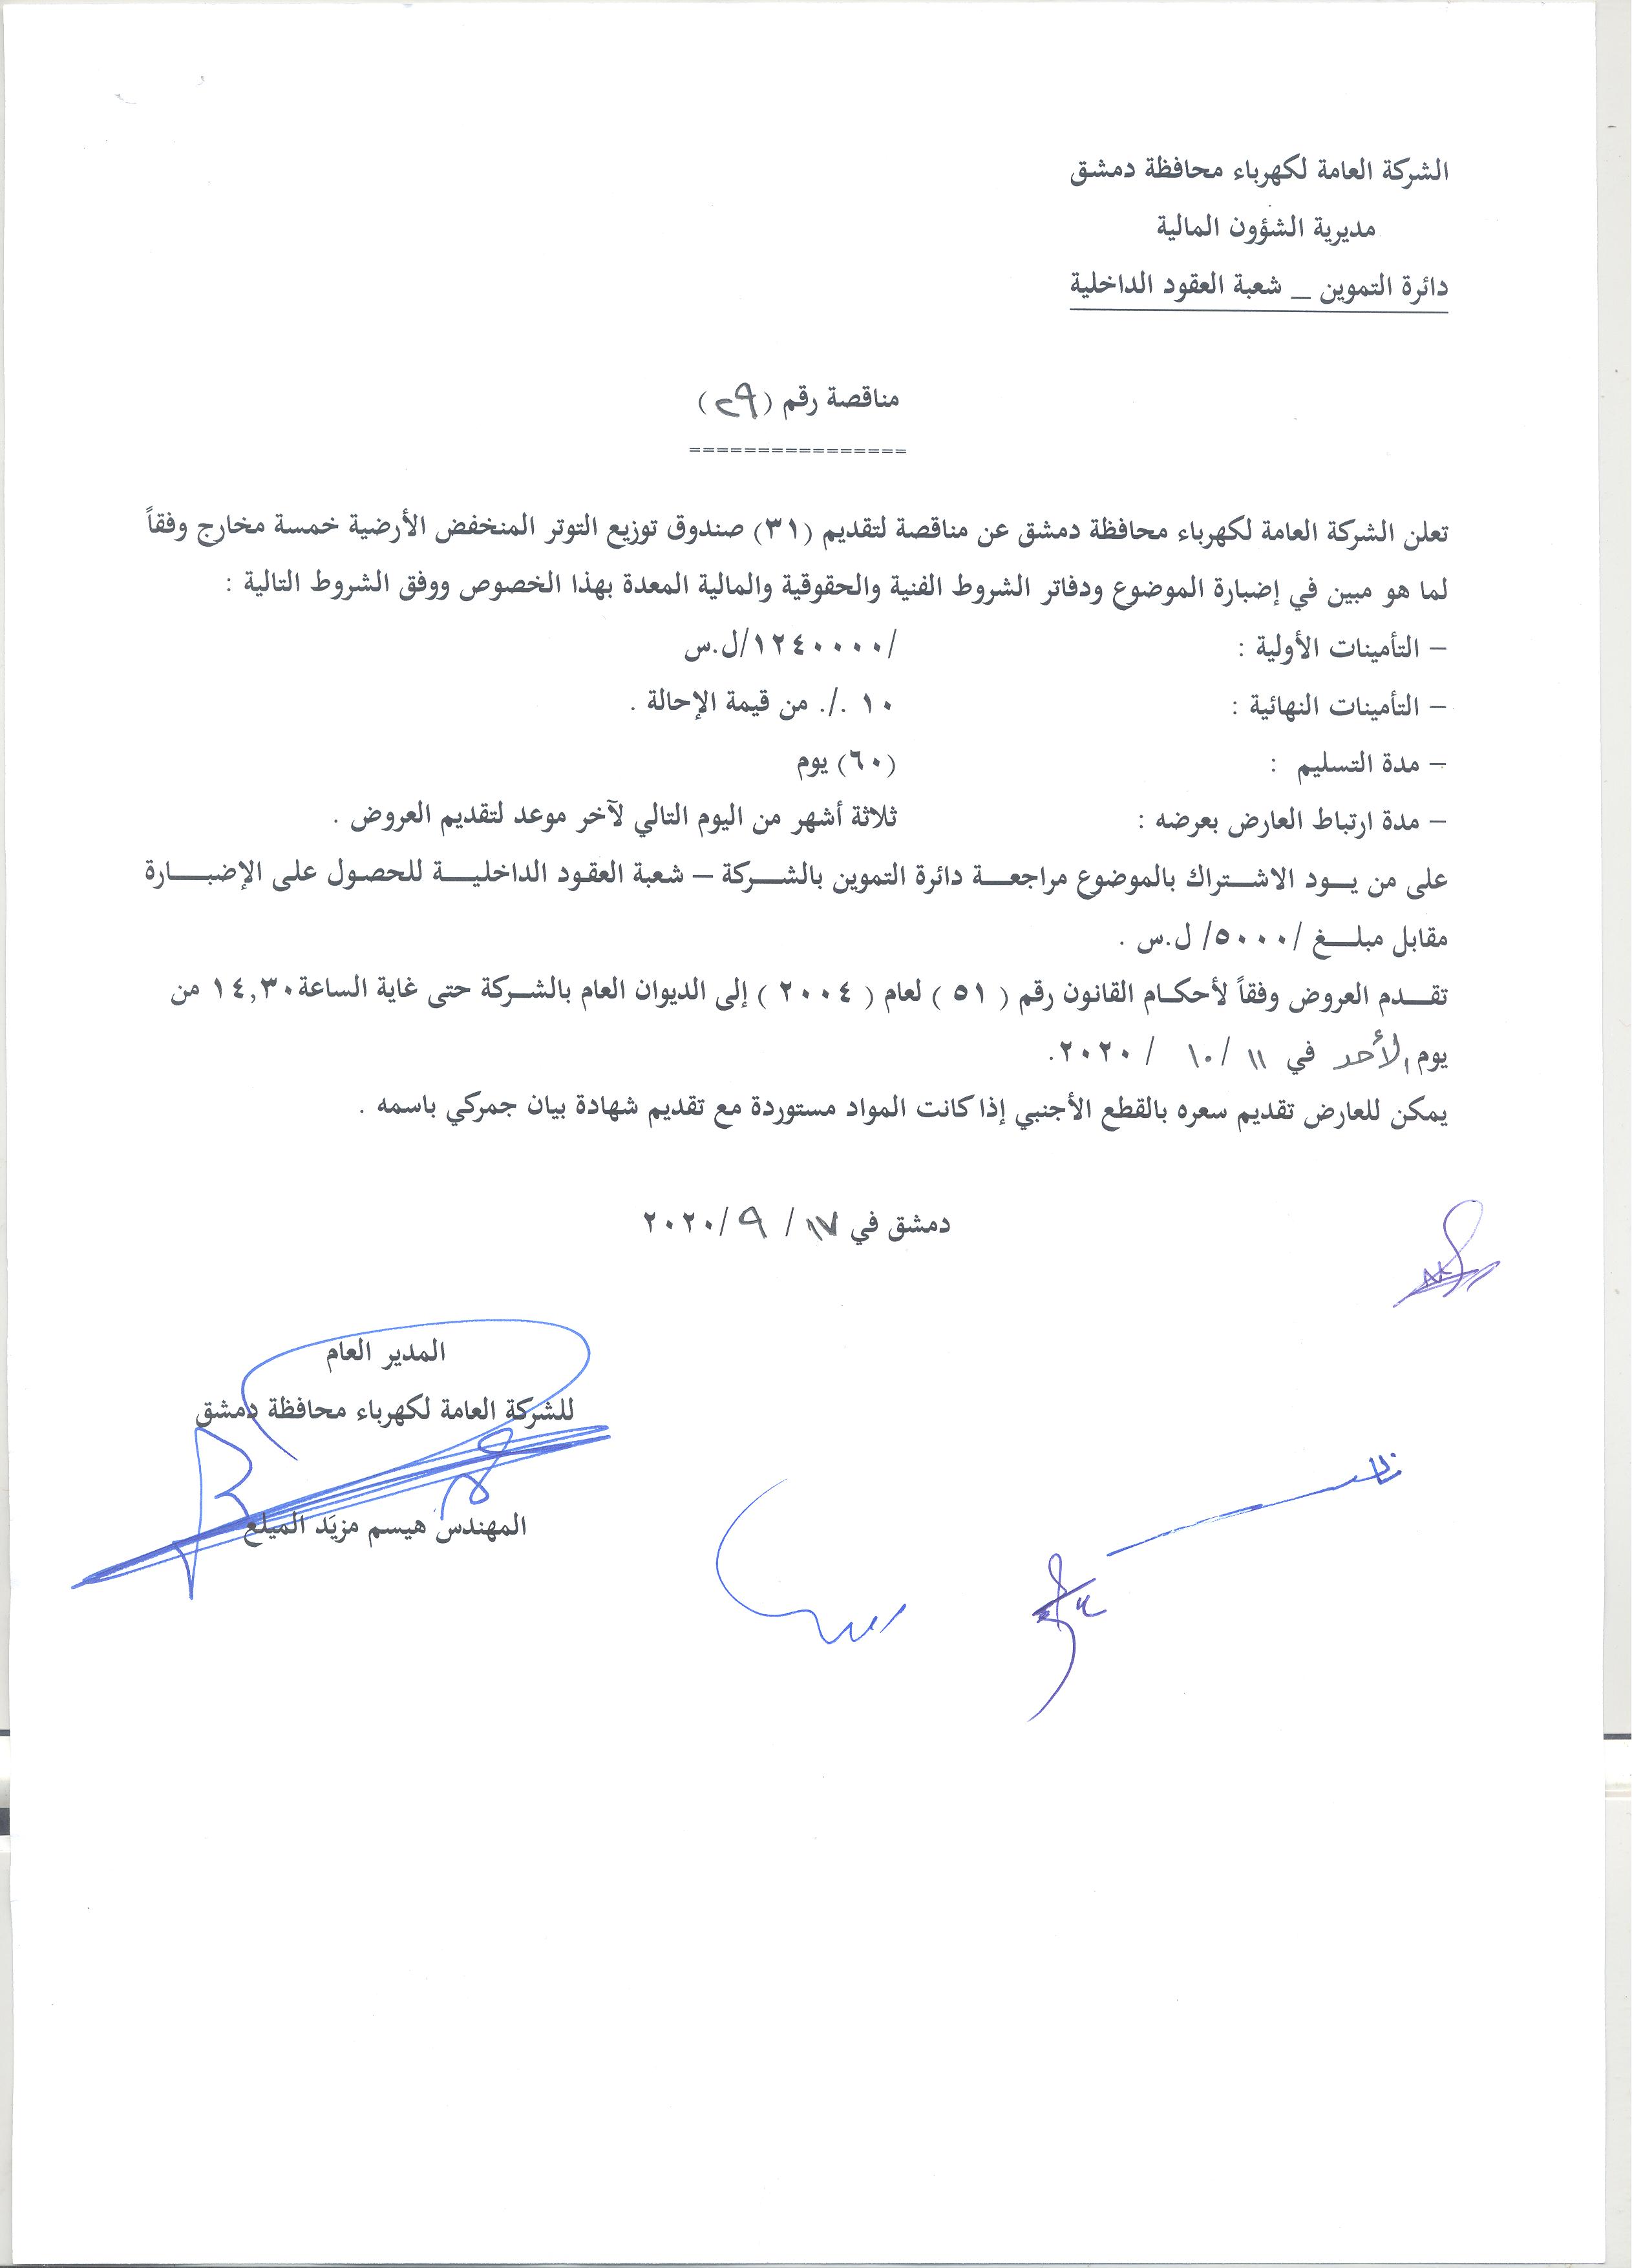 الشركة العامة لكهرباء محافظة دمشق
مديرية الشؤون المالية
دائرة التموين _ شعبة العقود الداخلية
مناقصة رقم (٢٩)
================
تعلن الشركة العامة لكهرباء محافظة دمشق عن مناقصة لتقديم (٣١) صندوق توزيع التوتر المنخفض الأرضية خمسة مخارج وفقاً
لما هو مبين في إضبارة الموضوع ودفاتر الشروط الفنية والحقوقية والمالية المعدة بهذا الخصوص ووفق الشروط التالية :
– التأمينات الأولية : /١٢٤٠٠٠٠/ل.س
– التأمينات النهائية : ١٠ ./. من قيمة الإحالة .
– مدة التسليم : (٦٠) يوم
– مدة ارتباط العارض بعرضه : ثلاثة أشهر من اليوم التالي لآخر موعد لتقديم العروض .
على من يـــود الاشـــتراك بالموضوع مراجعـــة دائرة التموين بالشـــركة – شعبة العقود الداخليـــة للحصول على الإضبـــارة
مقابل مبلـــغ /٥٠٠٠/ ل.س .
تقـــدم العروض وفقاً لأحكـام القانون رقم ( ٥١ ) لعام ( ٢٠٠٤ ) إلى الديوان العام بالشـركة حتى غاية الساعة١٤,٣٠ من
يوم الأحد في ١١ / ١٠ / ٢٠٢٠.
يمكن للعارض تقديم سعره بالقطع الأجنبي إذا كانت المواد مستوردة مع تقديم شهادة بيان جمركي باسمه .
دمشق في ١٧ / ٩ /٢٠٢٠
المدير العام
للشركة العامة لكهرباء محافظة دمشق
المهندس هيسم مزيَد الميلع